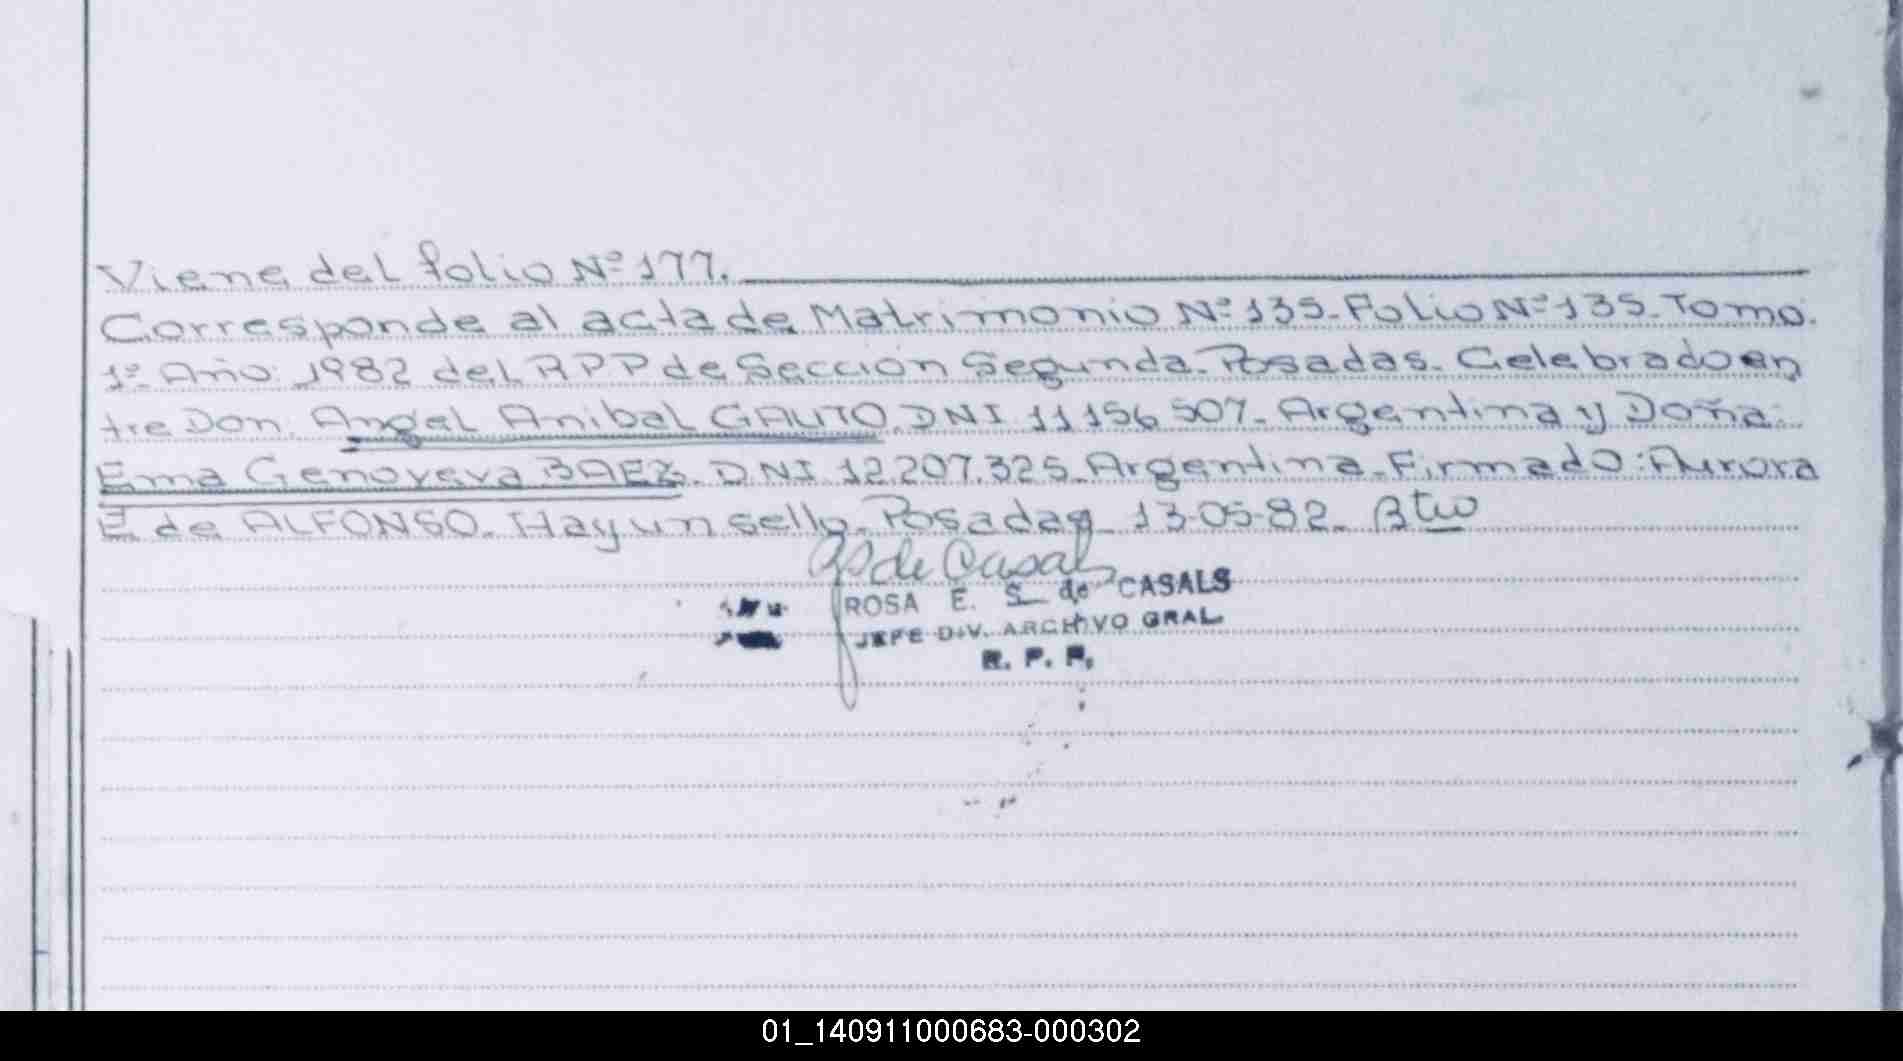 Viene del folio Nº 177.
Corresponde al acta de Matrimonio Nº 135. Folio Nº 135. Tomo.
1º. Año: 1982 del RPP de Sección Segunda. Posadas. Celebrado en
tre Don. Angel Anibal GAUTO. DNI 11156 507. Argentina y Doña:
Ema Genoveva BAEZ. DNI 12.207.325. Argentina. Firmado: Aurora
E de ALFONSO. Hay un sello. Posadas 13-05-82.
de Casals
ROSA E. S. de CASALS
JEFE DIV. ARCHIVO GRAL
R. P. P.
01_140911000683-000302